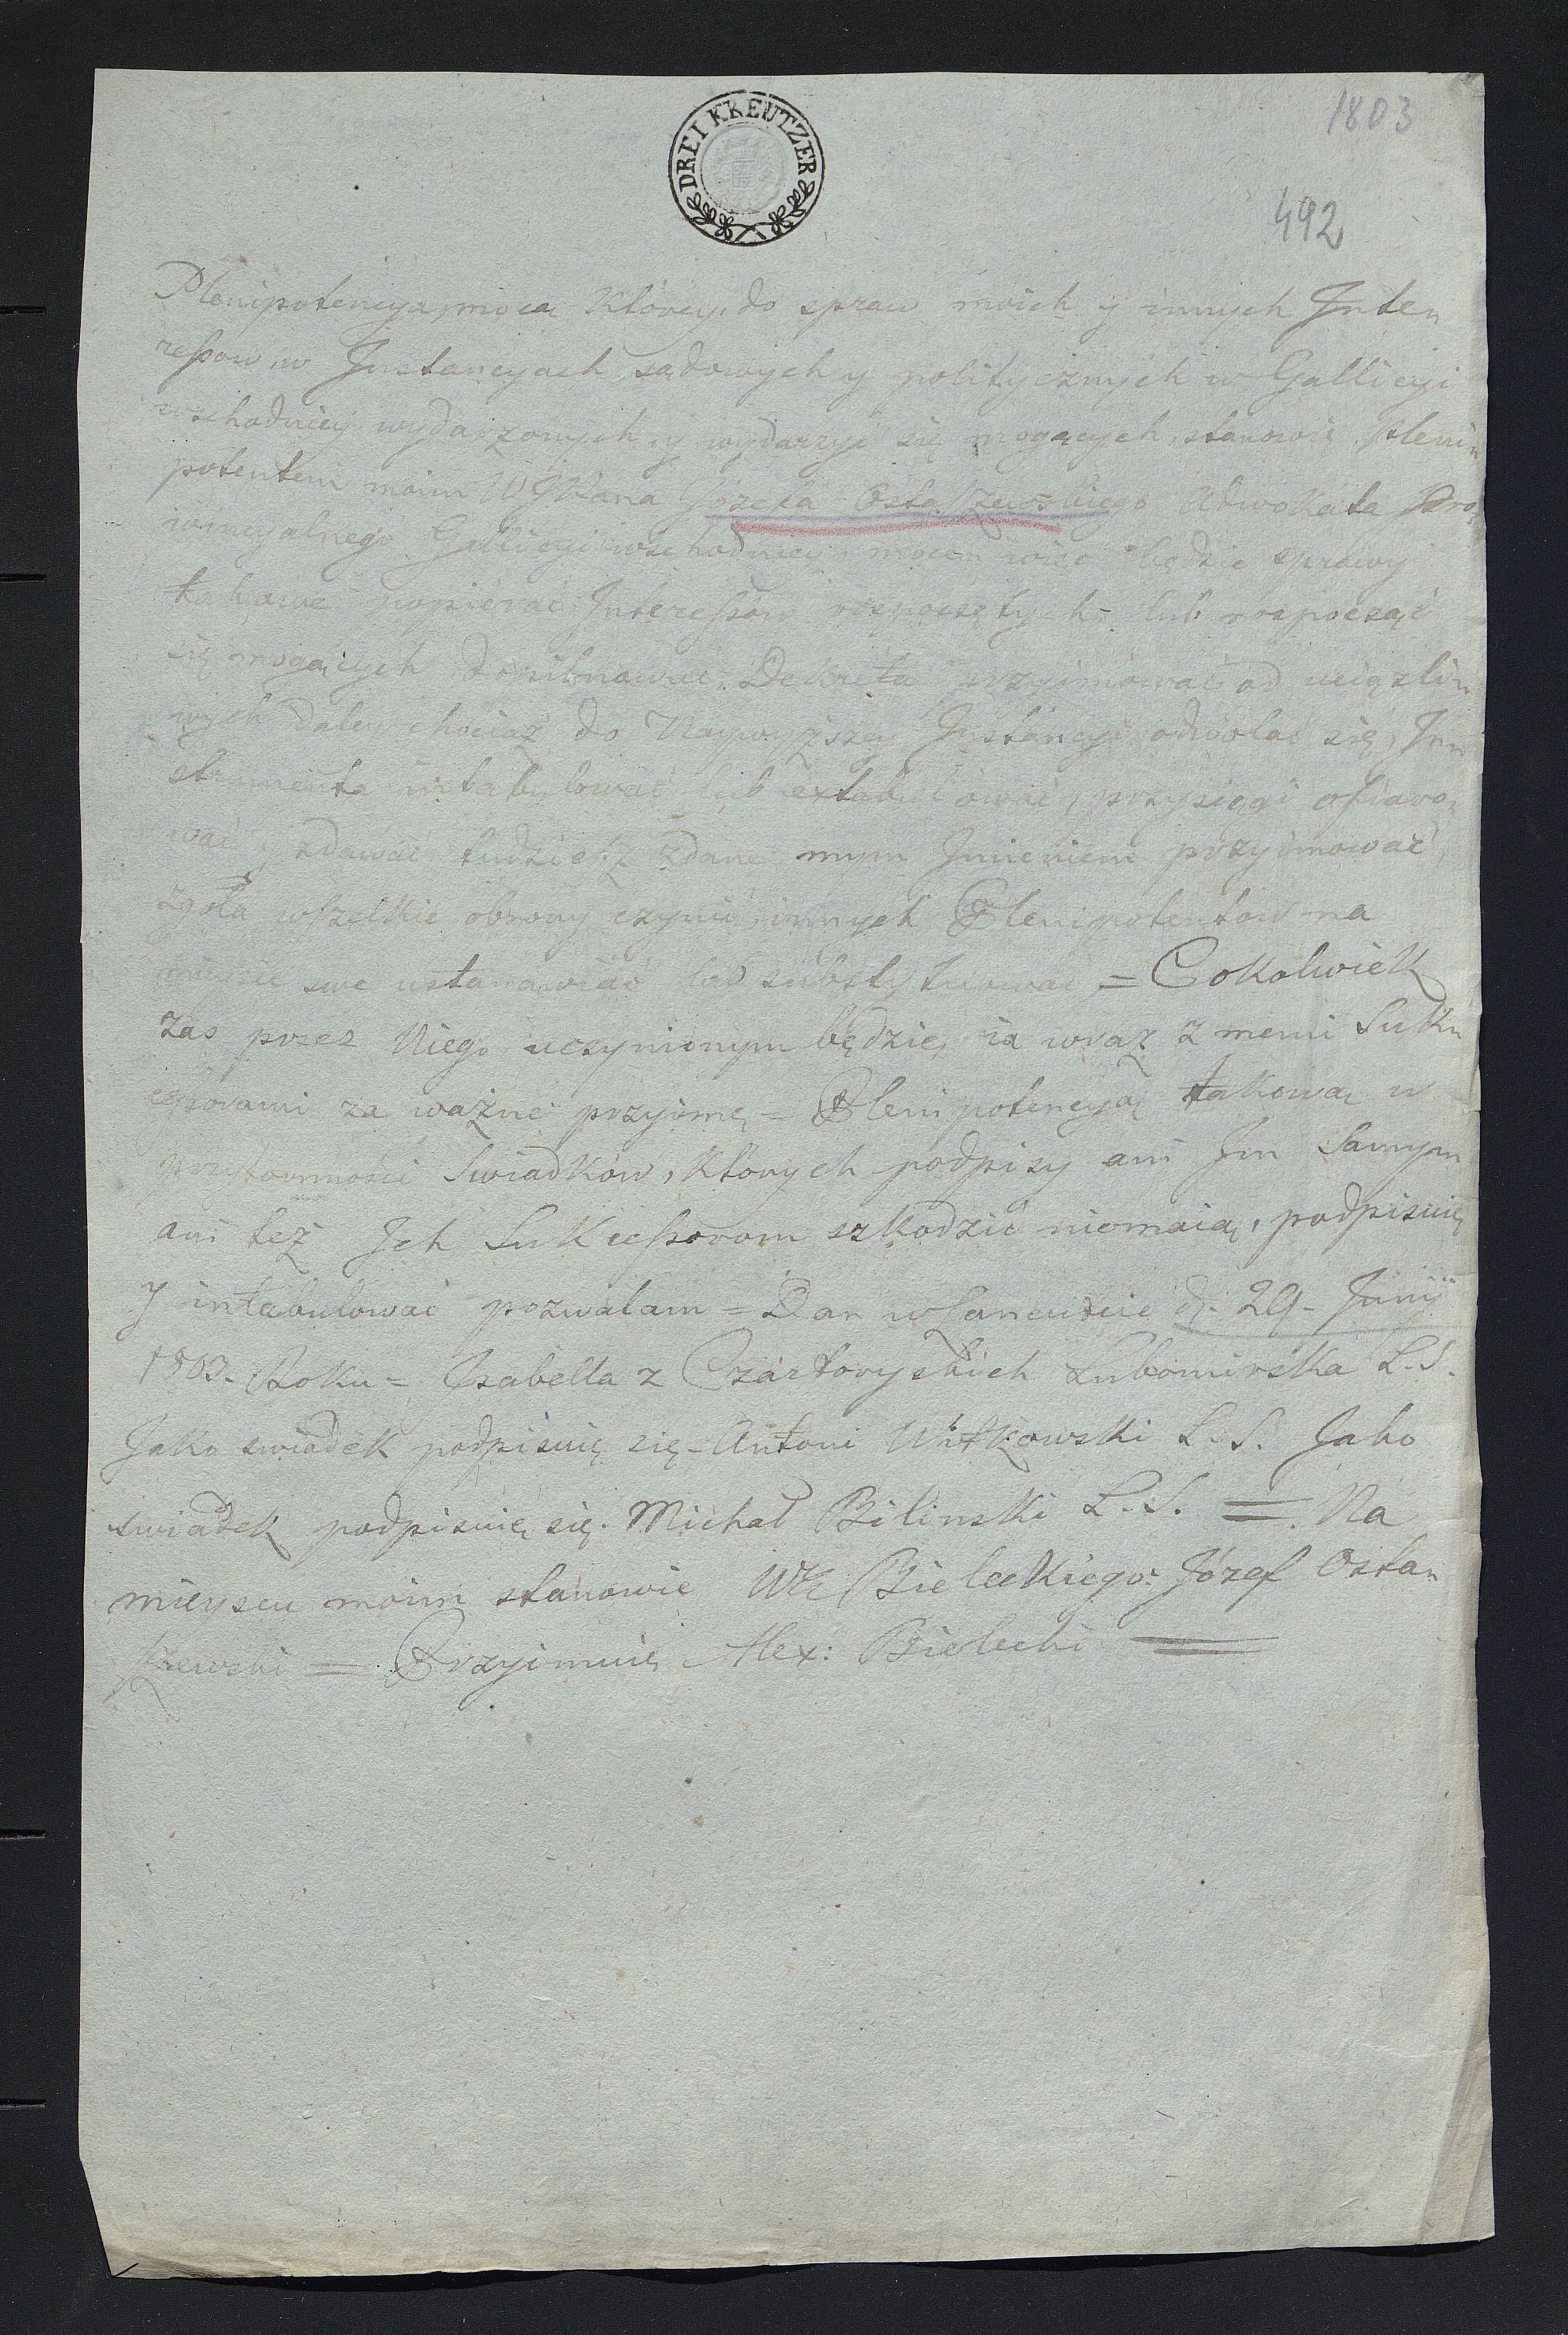 1803
DREI KREUTZER
492
Plenipotencya, mocą Którey, do spraw moich y innych Inte„
ressow w Instancyach sądowych y politycznych w Gallicyi
wschodniey wydarzonych y wydarzyć się mogących, stanowię Pleni„
potentem moim WJPana Józefa Ostaszewskiego Adwokata Pro„
wincyalnego Gallicyi wschodniey, mocen więc będzie sprawy
takowe popierać, Interessow rospoczętych lub rospocząć
się mogących dopilnować, Dekreta przyimować od uciążli„
wych daley chociaż do Naywyższey Instancyi odwołać się, In„
strumenta intabulować lub extabulować, przysięgi ofiaro„
wać y zdawać tudzież zdane mym Imieniem przyimować,
zgoła wszelkie obrony czynić innych Plenipotentow na
mieysce swe ustanawiać lub substytuować, = Cokolwiek
zas przez Niego uczynionym będzie, ia wraz z memi Suk„
cessorami za ważne przyimę = Plenipotencyą takową w
przytomności Swiadków, Ktorych podpisy ani Im Samym
ani też Ich Sukcessorom szkodzić niemaią, podpisuię
y intabulować pozwalam = Dan w Łancucie d. 29. Junij
1803. Roku = Isabella z Czartoryskich Lubomirska L.S.
Jako swiadek podpisuię się - Antoni Witkowski L.S. Jako
swiadek podpisuię się. Michał Bilinski L.S. = Na
mieyscu moim stanowie W Bieleckiego: Józef Osta„
szewski = Przyimuię Alex: Bielecki =